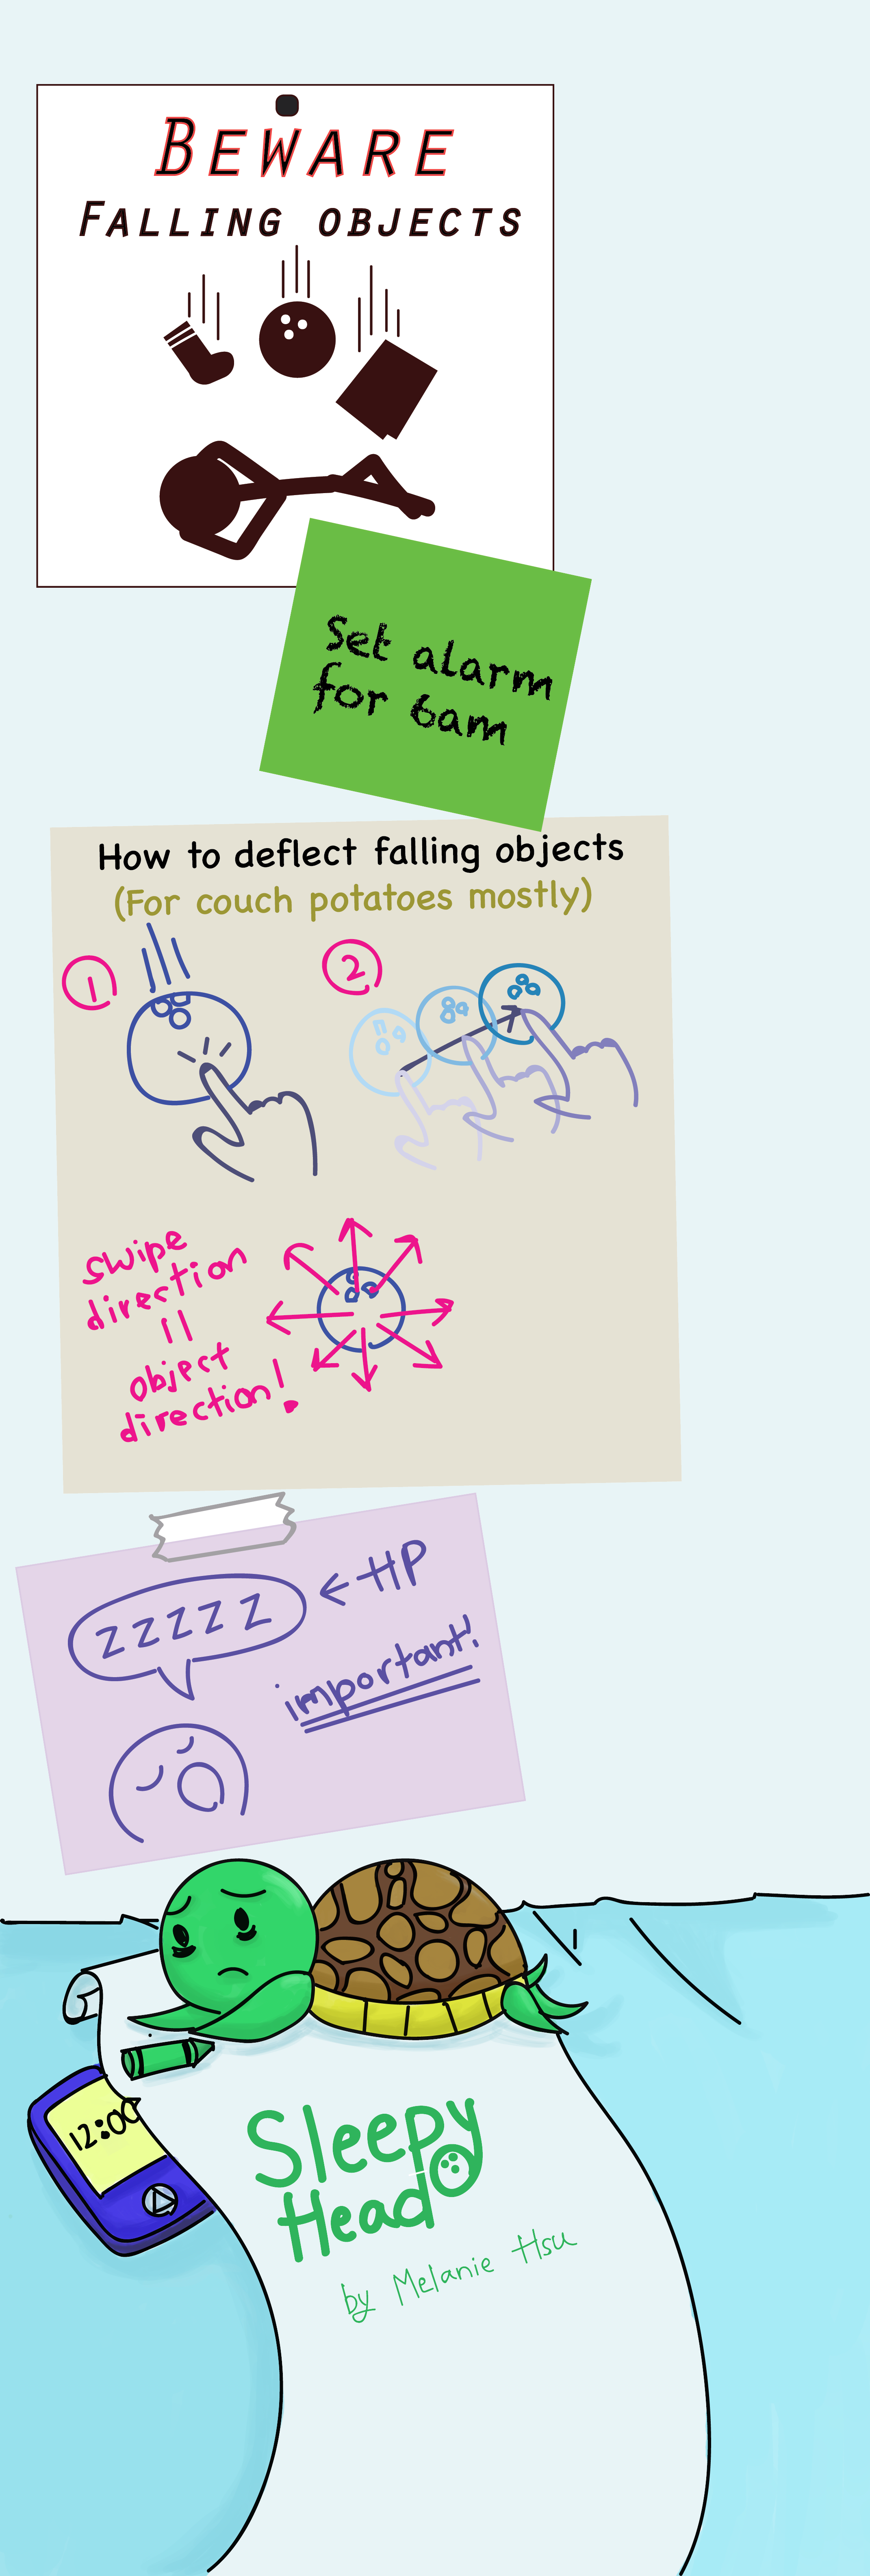 BEWARE
FALLING OBJECTS
Set alarm
for 6am
How to deflect falling objects
(For couch potatoes mostly)
1
2
swipe
direction
=
object
direction!
ZZZZZ
← HP
important!
12:00
Sleepy
Head
by Melanie Hsu